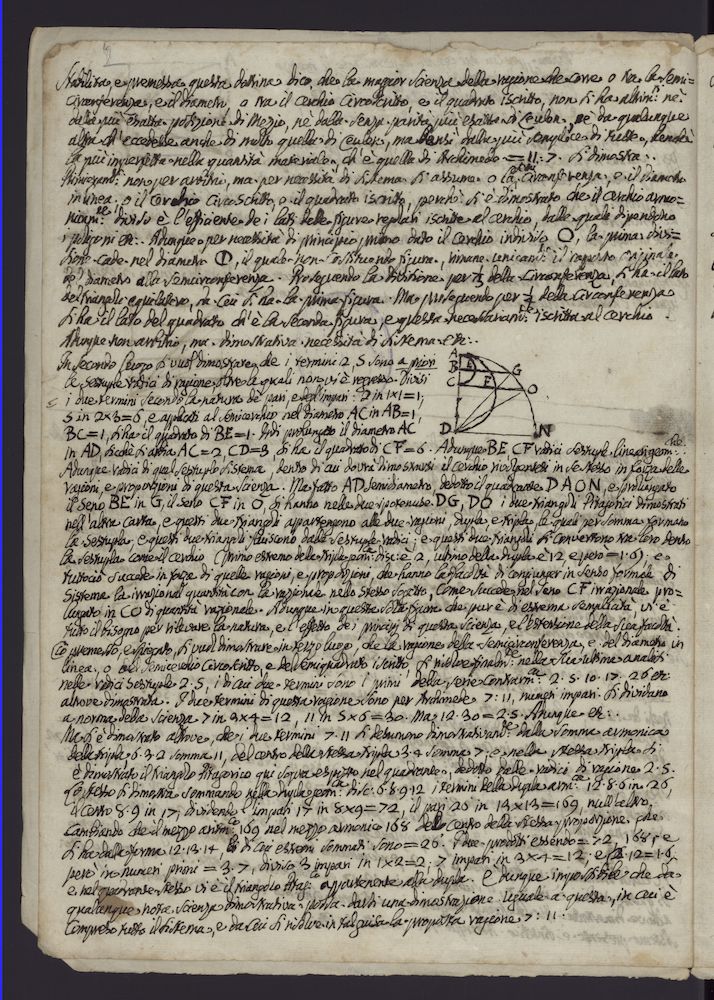 Stabilita, e premessa questa dottrina dico, che la maggior Scienza della ragione che corre o tra la Semi=
circonferenza, e il diametro, o tra il Cerchio Circoscritto, e il quadrato iscritto, non si ha altrim.i nè
dalla più esatta posizione di Mezio, nè dalla Senza parità più esatta di Ceulen, nè da qualunque
altra ch'eccedesse anche di molto quella di Ceulen, ma bensì dalla più semplice di tutte, benchè
la più imperfetta nella quantità materiale, ch'è quella di Archimede = 11:7. Si dimostra.
Primieram.e non per arbitrio, ma per necessità di sistema si assume o la Circonferenza, e il diametro
in linea, o il Cerchio Circoscritto, o il quadrato iscritto, perchè si è dimostrato che il Cerchio armo=
nicam.e diviso è l'efficiente de i lati delle figure regolari iscritte al Cerchio, dalle quali dipendono
i poligoni etc. Adunque per necessità di principio, primo dato il Cerchio indiviso O, la prima divi=
sione cade nel diametro, il quale non costituendo figura, rimane unicam.e il rapporto originale
del diametro alla Semicirconferenza. Proseguendo la divisione per 1/3 della Circonferenza, si ha il lato
del triangolo equilatero, in cui si ha la prima figura. Ma proseguendo per 1/4 della Circonferenza
si ha il lato del quadrato ch'è la seconda figura, e questa necessariam.e iscritta al Cerchio.
Adunque non arbitrio, ma dimostrativa necessità di sistema etc:.
In secondo luogo si vuol dimostrare, che i termini 2, 5 sono a priori
le sestuple radici di ragione, oltre la quali non vi è regresso. Divisi
i due termini secondo la natura de' pari, e degl'impari: 2 in 1×1=1,
5 in 2×3=6, e applicati al semicerchio nel diametro AC in AB=1,
BC=1, si ha il quadrato di BE=1. Indi prolungato il diametro AC
in AD, sicchè si abbia AC=2, CD=3, si ha il quadrato di CF=6. Adunque BE CF radici sestuple linea geom.che
A B C D E F G O N
Adunque radici di quel sestuplo sistema, dentro di cui dovrà dimostrarsi il Cerchio risolventesi in se stesso in forza delle
ragioni, e proporzioni di questa Scienza. Ma fatto AD semidiametro dedotto il quadrante DAON, e prolungato
il seno BE in G, il seno CF in O, si hanno nelle due ipotenuse DG, DO i due triangoli Pitagorici dimostrati
nell'altra carta, e questi due triangoli appartengono alle due ragioni, dupla, e tripla, le quali per somma formano
la sestupla, e questi due triangoli nascono dalle sestuple radici; e questi due triangoli si convertono tra loro dentro
la sestupla come il Cerchio (primo estremo della tripla geom.a disc.e 2, ultimo della tripla è 12 e però = 1.6); e
tuttociò succede in forza di quelle ragioni, e proporzioni, che hanno la facoltà di congiunger in senso formale di
Sistema la irrazional quantità con la razionale nello stesso soggetto, come succede nel seno CF irrazionale pro=
lungato in CO di quantità razionale. Adunque in questa sola figura che pur è di estrema semplicità, vi è
tutto il bisogno per rilevare la natura, e l'effetto de i principj di questa Scienza, e l'estensione della sua facoltà.
Ciò premesso, e spiegato, si vuol dimostrare in terzo luogo, che la ragione della Semicirconferenza, e del diametro in
linea, o del semicerchio Circoscritto, e del semiquadrato iscritto si risolve finalm.e nella sua ultima analisi
nelle radici sestuple 2:5, i di cui due termini sono i primi della serie 2:5:10:17:26 etc:
altrove dimostrata. I due termini di questa ragione sono per Archimede 7:11, numeri impari. Si dividano
a norma della Scienza 7 in 3×4=12, 11 in 5×6=30. Ma 12:30=2:5. Adunque etc:.
Ma si è dimostrato altrove, che i due termini 7:11 si deducono dimostrativam.e dalla somma armonica
della tripla 6.3.2 somma 11, del centro della stessa tripla 3.4 somma 7: e nella stessa tripla si
è dimostrato il triangolo Pitagorico qui sopra espresso nel quadrante, dedotto dalle radici di ragione 2:5.
Lo stesso si dimostra sommando nella dupla geom.a disc.e 6.8.9.12 i termini della dupla arm.ca 12.8.6 in 26,
il Centro 8.9 in 17; dividendo l'impari 17 in 8×9=72, il pari 26 in 13×13=169, null'altro,
cambiando che il mezzo aritm.co 169 nel mezzo armonico 168 del Centro della stessa proporzione, che
si ha dalla forma 12.13.14, di cui estremi sommati sono = 26. I due prodotti essendo = 72, 168, e
però in numeri primi = 3.7, diviso 3 impari in 1×2=2; 7 impari in 3×4=12; e 2:12=1:6,
e nel quadrante stesso vi è il triangolo Pitag.co appartenente alla dupla. E dunque impossibile che da
qualunque nota Scienza dimostrativa possa darsi una dimostrazione uguale a questa, in cui è
compreso tutto il sistema, e da cui si risolve in tal guisa la proposta ragione 7:11.